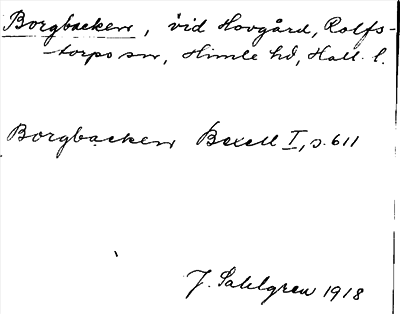 Borgbacken, vid Hovgård, Rolfs-
torps sn, Himle hd, Hall. l.
Borgbacken Bexell I, s. 611
J. Sahlgren 1918